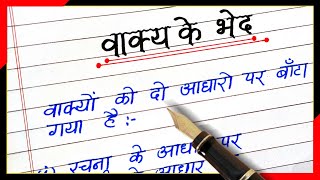 वाक्य के भेद
वाक्यों को दो आधारो पर बाँटा
गया है :-
रचना के आधार पर
के आधार